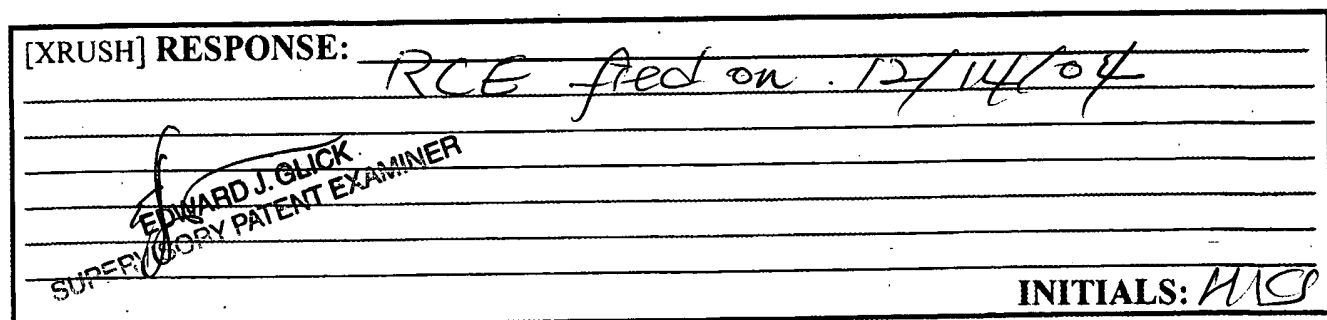 [XRUSH] RESPONSE: RCE filed on . 12/14/04
EDWARD J. GLICK
SUPERVISORY PATENT EXAMINER
INITIALS: